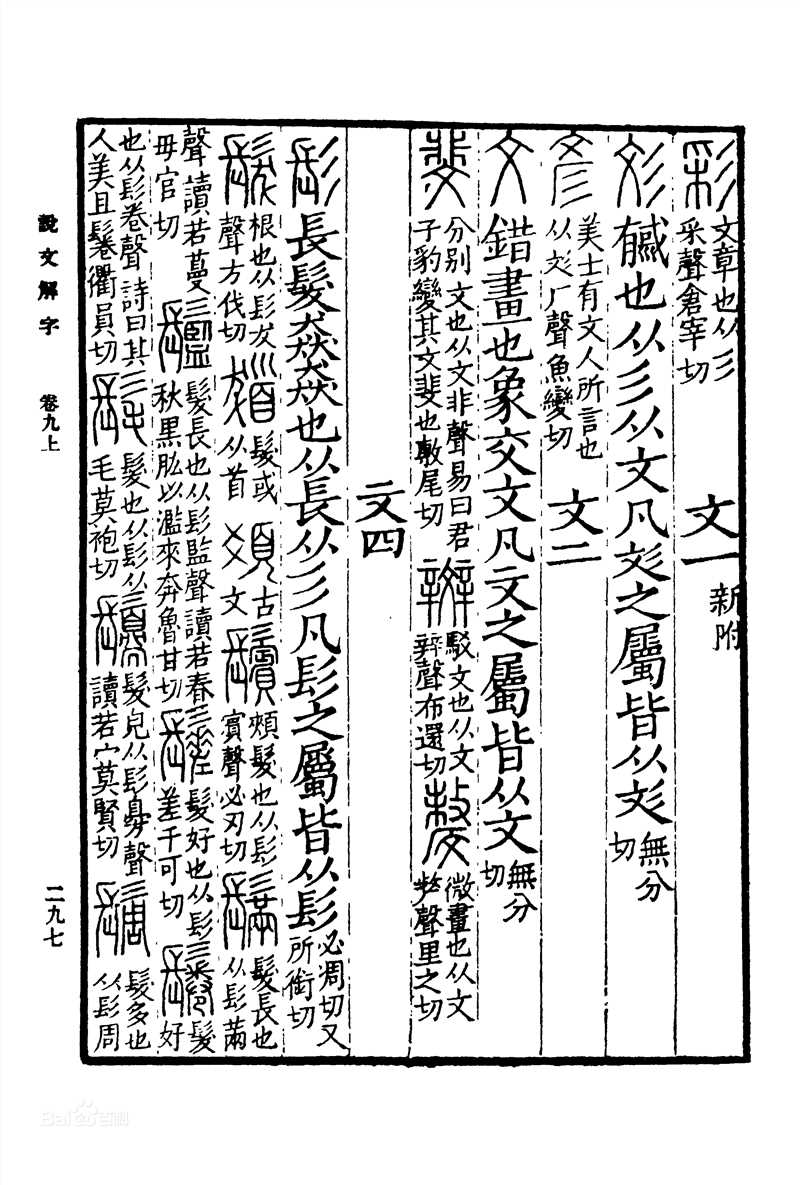 彩 文章也从彡采聲倉宰切 文一 新附
彣 𢒈也从彡从文凡彣之屬皆从彣 無分切
彥 美士有文人所言也从彣厂聲魚變切 文二
文 錯畫也象交文凡文之屬皆从文 無分切
斐 分别文也从文非聲易曰君子豹變其文斐也敷尾切 辬 駁文也从文辡聲布還切 斄 微畫也从文𠩺聲里之切
文四
髟 長髮猋猋也从長从彡凡髟之屬皆从髟 必凋切又所銜切
髮 根也从髟犮聲方伐切 𩠙 髮或从首 𩑔 古文 鬢 頰髮也从髟賓聲必刃切 𩯭 髮長也从髟㒼
聲讀若蔓毋官切 𩮜 髮長也从髟監聲讀若春秋黑肱以濫來奔魯甘切 鬛 髮好也从髟差千可切 鬈 髮好
也从髟卷聲詩曰其人美且鬈衢員切 髦 髮也从髟从毛莫袍切 𩭾 髮皃从髟臱聲讀若宀莫賢切 鬜 髮多也从髟周
說文解字 卷九上
二九七
Baidu百科